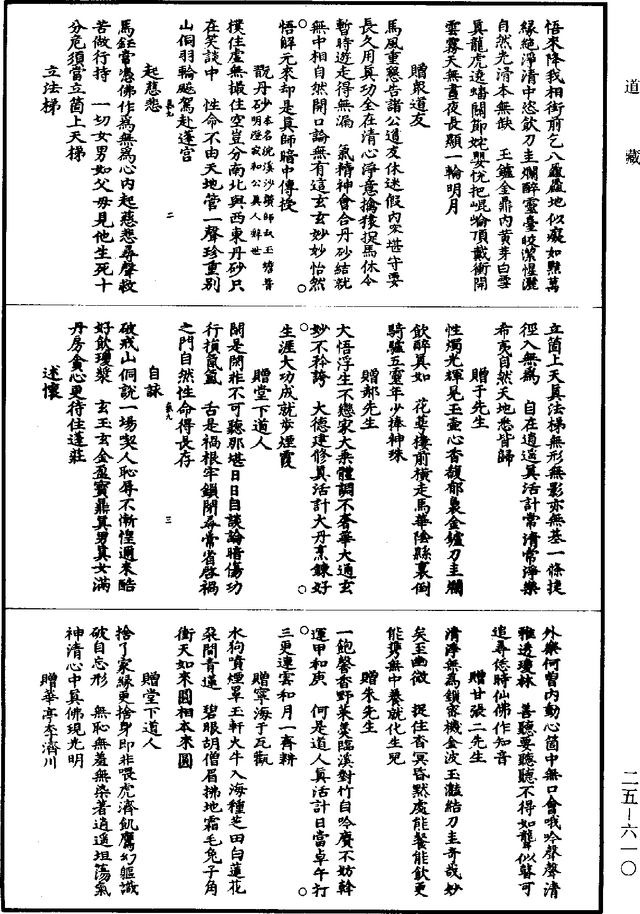 道藏
悟來降我相街前乞八矗矗地似癡如㸃萬
緣絶淨清中恣飲刀圭爛醉靈臺皎潔惺灑
自然光滑本無缺　玉鑪金鼎內黃芽白雪
真龍虎遶蟠關節姹嬰恍把崐崘頂戴衝開
雲霧天無晝夜長顯一輪明月
贈衆道友
馬風重懇告諸公道友休迷假內容堪守要
長久用真功全在清心淨意擒猿捉馬休令
暫時遊走得無漏　氣精神會合丹砂結就
無中相自然開口論無有這玄玄妙妙怡然
悟解元來却是真師暗中傳授
翫丹砂本名浣溪沙
撲住虛無撮住空豈分南北與西東丹砂只
在笑談中　性命不由天地管一聲珍重別
山侗羽輪飈駕赴蓬宮
起慈悲
馬鈺常憑佛作為無為心內起慈悲尋聲救
苦做行持　一切女男如父母見他生死十
分危須當立箇上天梯
立法梯
立箇上天真法梯無形無影亦無基一條捷
徑入無為　自在逍遥真活計常清常淨樂
希夷自然天地悉皆歸
贈于先生
性燭光輝見玉壺心香馥郁裊金鑪刀圭爛
飲醉真如　花萼樓前横走馬華陰縣裏倒
騎驢五靈年少捧神珠
贈郝先生
大悟浮生不戀家大乘體調不奢華大通玄
妙不矜誇　大德建修真活計大丹烹鍊好
生涯大功成就步煙霞
贈堂下道人
閑是閑非不可聽那堪日日自談論暗傷功
行損氤氳　舌是禍根牢鎖閉尋常省啓禍
之門自然性命得長存
自詠
破戒山侗說一場喫人恥辱不慚惶邇來酷
好飲瓊漿　玄玉玄金盈寶鼎真男真女滿
丹房貪心更待住蓬莊
述懷
外樂何曾内動心箇中無口會哦吟聲聲清
雅透瓊林　善聽要聽聽不得如聾似瞽可
追尋恁時仙佛作知音
贈甘張二先生
清淨無為鎖寂機金波玉㵎結刀圭奇哉妙
矣玉幽微　捉住杳冥昏黙處能餐能飲更
能携無中養就化生兒
贈朱先生
一飽馨香野菜羹臨溪對竹自吟賡不妨斡
運甲和庚　何是道人真活計日當卓午打
三更連雲和月一齊耕
贈寧海于瓦氈
水狗噴煙罩玉軒火牛入海種芝田白蓮花
朶間青蓮　碧眼胡僧眉拂地霜毛兔子角
衝天如來圓相本來圓
贈堂下道人
捨了家緣更捨身即非喂虎濟飢鷹幻軀識
破自忘形　無恥無羞無染著逍遥坦蕩氣
神清心中真佛現光明
贈華亭李濟川
二五—六一〇